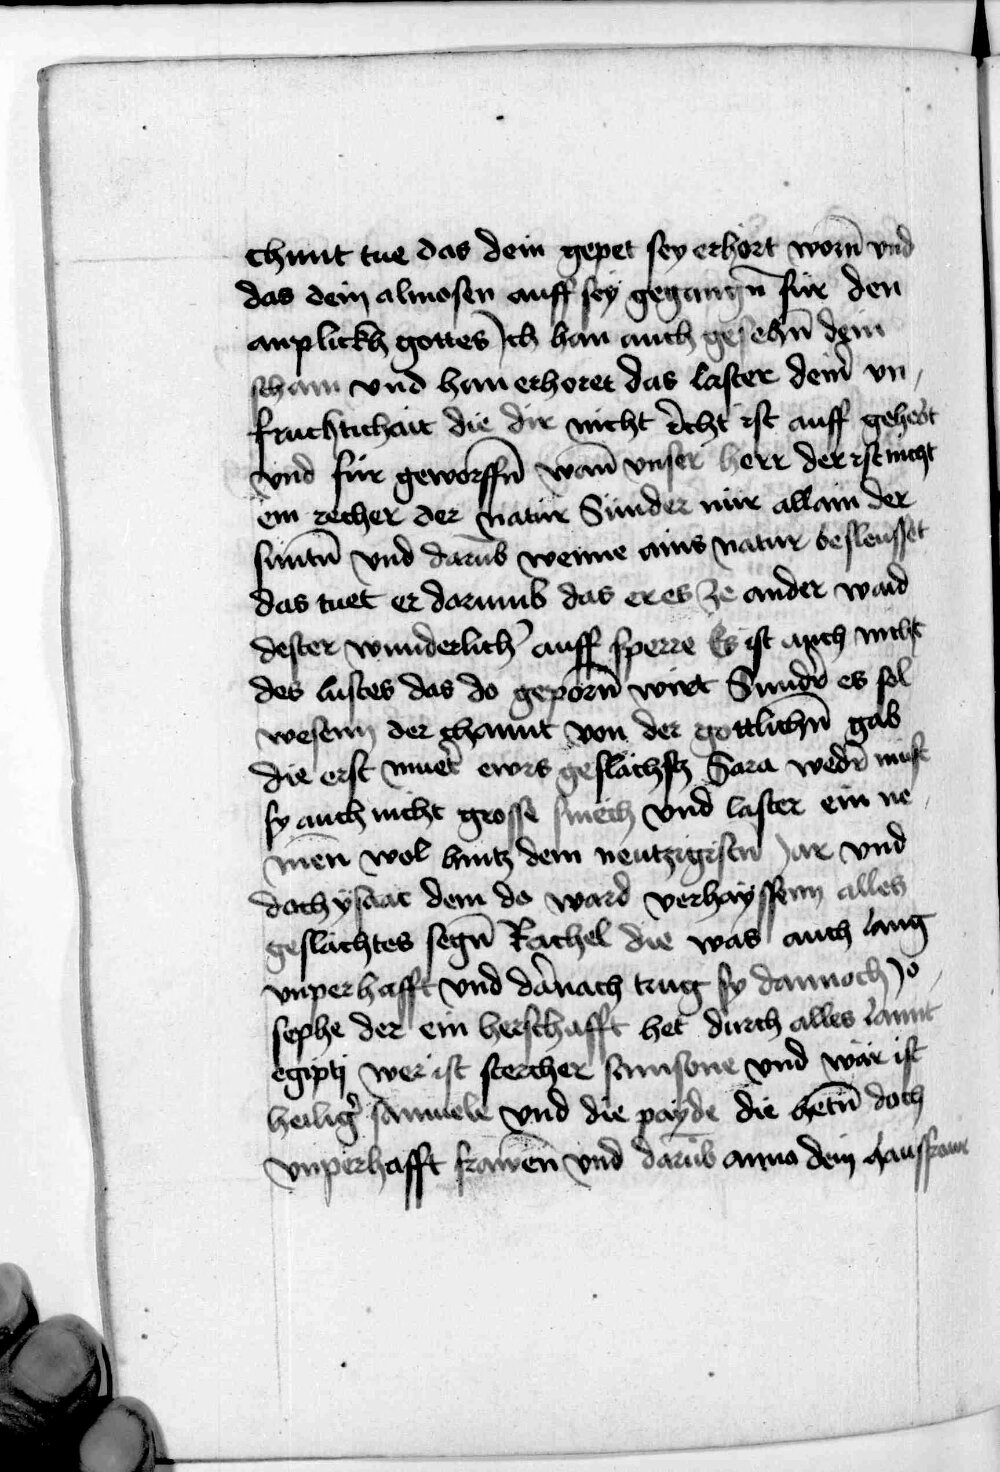 chunt tue das dein gepet sey erhört worn̄ vnd
das dein almosen auff sey gegangn̄ für den
anplickh gottes Ich han auch gesehn̄ dein
scham vnd han erhoret das laster dein̄ vn
fruchtichait die dir nicht r̄cht ist auff gehebt
vnd für geworffn̄ wan̄ vnser herr der ist nicht
ein recher der natur Sunder nur allain der
süntn̄ vnd darūb wenne ains natur besleusset
das tuet er darumb das er es ze ander waid
dester wunderlich̄ auff sperre Es ist auch nicht
des lustes das do geporn̄ wirt Sundr̄ es sol
wesenn der chanut von der gottlichn̄ gab
die erst muet̄ ewrs geslächtz Sara wedr̄ must
sy auch nicht grosse smech vnd laster ein ne
men̄ wol hintz dem neutzigistn̄ Jar vnd
doch ysaac dem do ward verhayssenn alles
geslächtes segn̄ Rachel die was auch lang
vnperhafft vnd dar̄nach trug sy dannoch Jo
sephe der ein herschafft het durch alles lannt
egipti wer ist stercher samsone vnd wär ist
heiliḡ samuele vnd die payde die hetn̄ doch
vnperhafft frawen̄ vnd darūb anna dein hausfraw